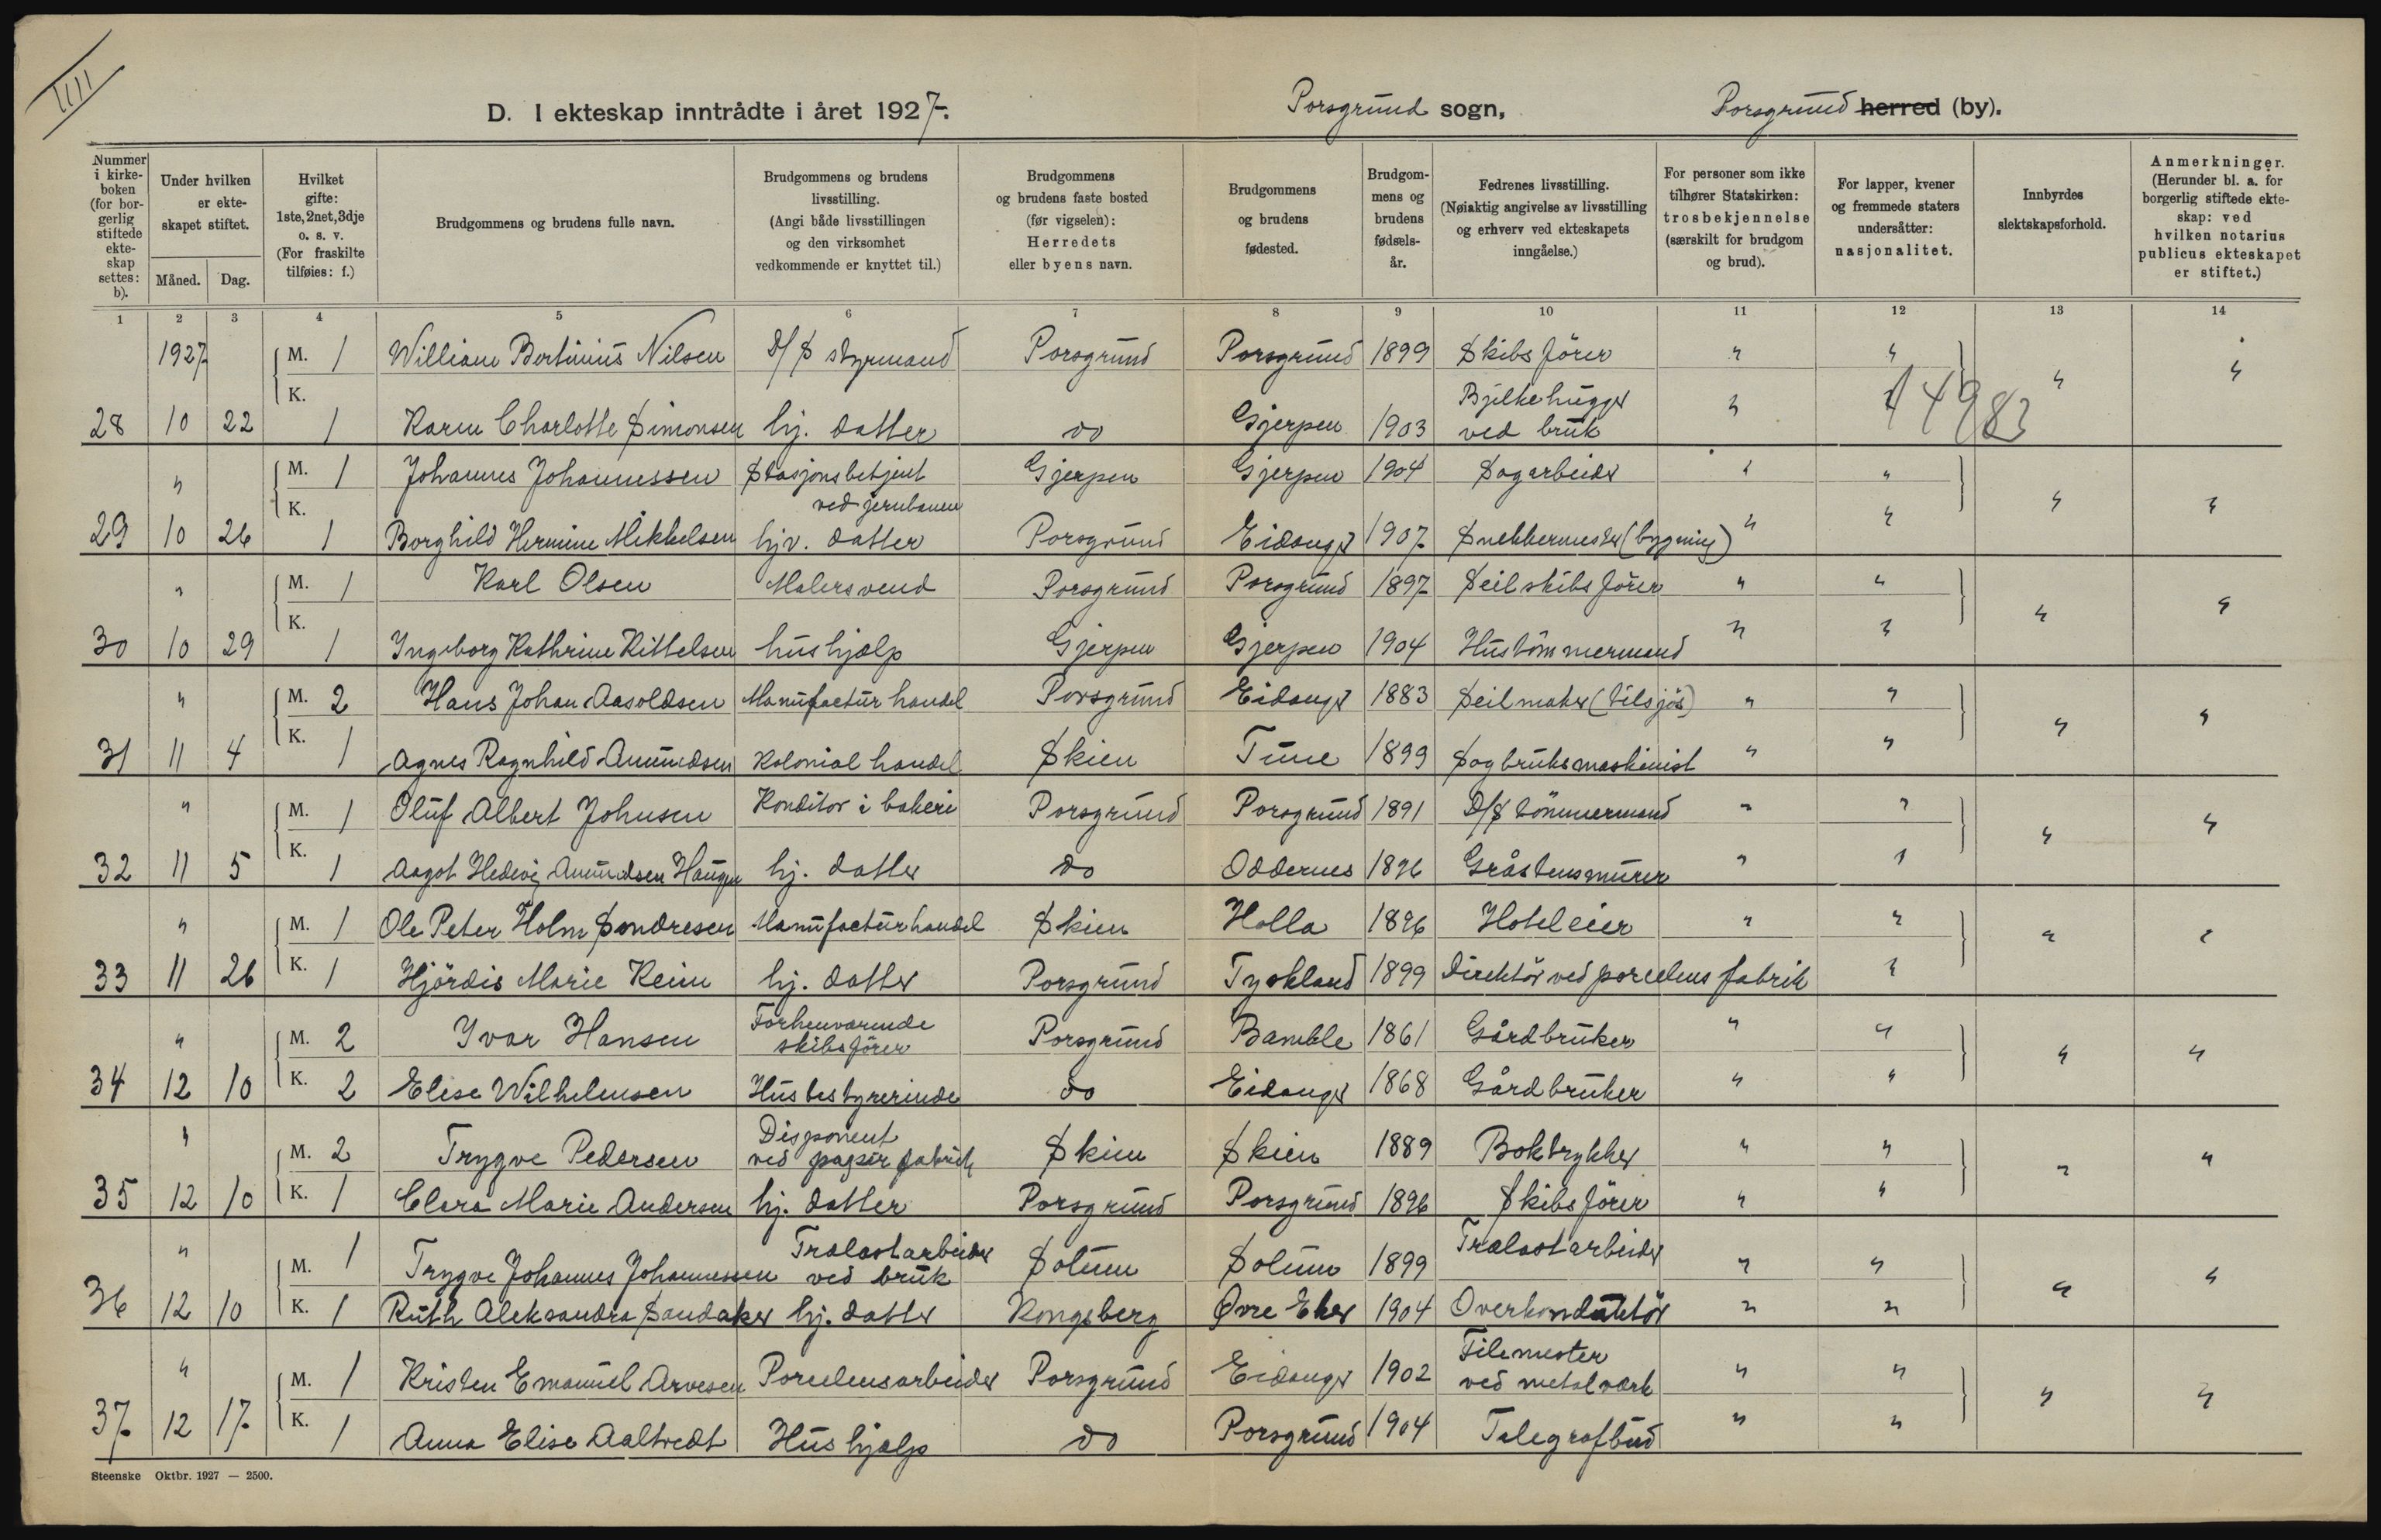 IIII
D. I ekteskap inntrådte i året 1927. Porsgrund sogn, Porsgrund herred (by).
Nummer i kirkeboken (for borgerlig stiftede ekteskap settes: b).
Under hvilken er ekteskapet stiftet.
Måned. Dag.
Hvilket gifte: 1ste, 2net, 3dje o. s. v. (For fraskilte tilføies: f.)
Brudgommens og brudens fulle navn.
Brudgommens og brudens livsstilling. (Angi både livsstillingen og den virksomhet vedkommende er knyttet til.)
Brudgommens og brudens faste bosted (før vigselen): Herredets eller byens navn.
Brudgommens og brudens fødested.
Brudgommens og brudens fødselsår.
Fedrenes livsstilling. (Nøiaktig angivelse av livsstilling og erhverv ved ekteskapets inngåelse.)
For personer som ikke tilhører Statskirken: trosbekjennelse (særskilt for brudgom og brud).
For lapper, kvener og fremmede staters undersåtter: nasjonalitet.
Innbyrdes slektskapsforhold.
Anmerkninger. (Herunder bl. a. for borgerlig stiftede ekteskap: ved hvilken notarius publicus ekteskapet er stiftet.)
1 2 3 4 5 6 7 8 9 10 11 12 13 14
1927 M. 1 William Bertinius Nilsen D/S styrmand Porsgrund Porsgrund 1899 Skibsförer " " " "
28 10 22 K. 1 Karen Charlotte Simonsen hj. datter do Gjerpen 1903 Bjelkehugger ved bruk " 14983
" M. 1 Johannes Johannessen Stasjonsbetjent ved jernbanen Gjerpen Gjerpen 1904 Sagarbeider " " " "
29 10 26 K. 1 Borghild Hermine Mikkelsen hjv. datter Porsgrund Eidanger 1907 Snekkermester (bygning) " "
" M. 1 Karl Olsen Malersvend Porsgrund Porsgrund 1897 Seilskibsförer " " " "
30 10 29 K. 1 Ingeborg Kathrine Kittelsen hushjælp Gjerpen Gjerpen 1904 Hustömmermand " "
" M. 2 Hans Johan Aasoldsen Manufacturhandel Porsgrund Eidanger 1883 Seilmaker (tilsjös) " " " "
31 11 4 K. 1 Agnes Ragnhild Amundsen Kolonialhandel Skien Tune 1899 Sagbruksmaskinist " "
" M. 1 Oluf Albert Johnsen Konditor i bakeri Porsgrund Porsgrund 1891 D/S tömmermand " " " "
32 11 5 K. 1 Aagot Hedevig Amundsen Haugen hj. datter do Oddernes 1896 Gråstensmurer " "
" M. 1 Ole Peter Holm Sondresen Manufacturhandel Skien Holla 1896 Hoteleier " " " "
33 11 26 K. 1 Hjördis Marie Keim hj. datter Porsgrund Tyskland 1899 Direktör ved porcelens fabrik "
" M. 2 Ivar Hansen Forhenværende skibsförer Porsgrund Bamble 1861 Gårdbruker " " " "
34 12 10 K. 2 Elise Wilhelmsen Husbestyrerinde do Eidanger 1868 Gårdbruker " "
" M. 2 Trygve Pedersen Disponent ved papir fabrik Skien Skien 1889 Boktrykker " " " "
35 12 10 K. 1 Clara Marie Andersen hj. datter Porsgrund Porsgrund 1896 Skibsförer " "
" M. 1 Trygve Johannes Johannessen Trælastarbeider ved bruk Solum Solum 1899 Trælastarbeider " " " "
36 12 10 K. 1 Ruth Aleksandra Sandaker hj. datter Kongsberg Övre Eker 1904 Overkonduktör " "
" M. 1 Kristen Emanuel Arvesen Porcelensarbeider Porsgrund Eidanger 1902 Filemester ved metalværk " " " "
37 12 17 K. 1 Anna Elise Aaltvedt Hushjælp do Porsgrund 1904 Telegrafbud " "
Steenske Oktbr. 1927 — 2500.